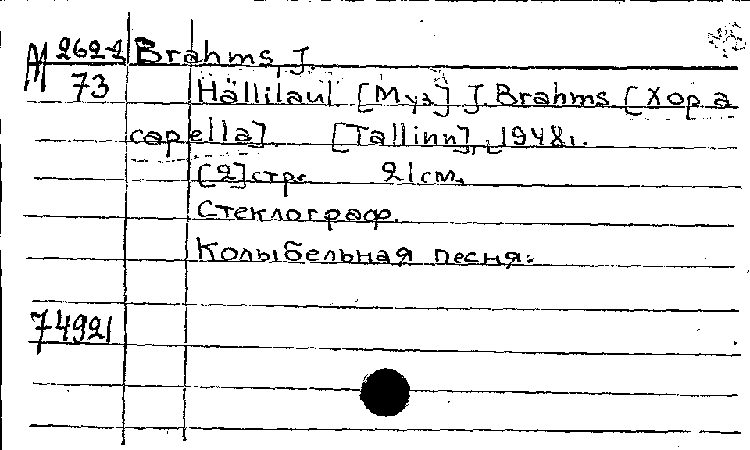 М 262-2 Brahms, J.
73 Hällilaul [Муз] J. Brahms [Хор а
capella]. [Tallinn], 1948.
[2] стр. 21 см.
Стеклограф.
Колыбельная песня.
74921